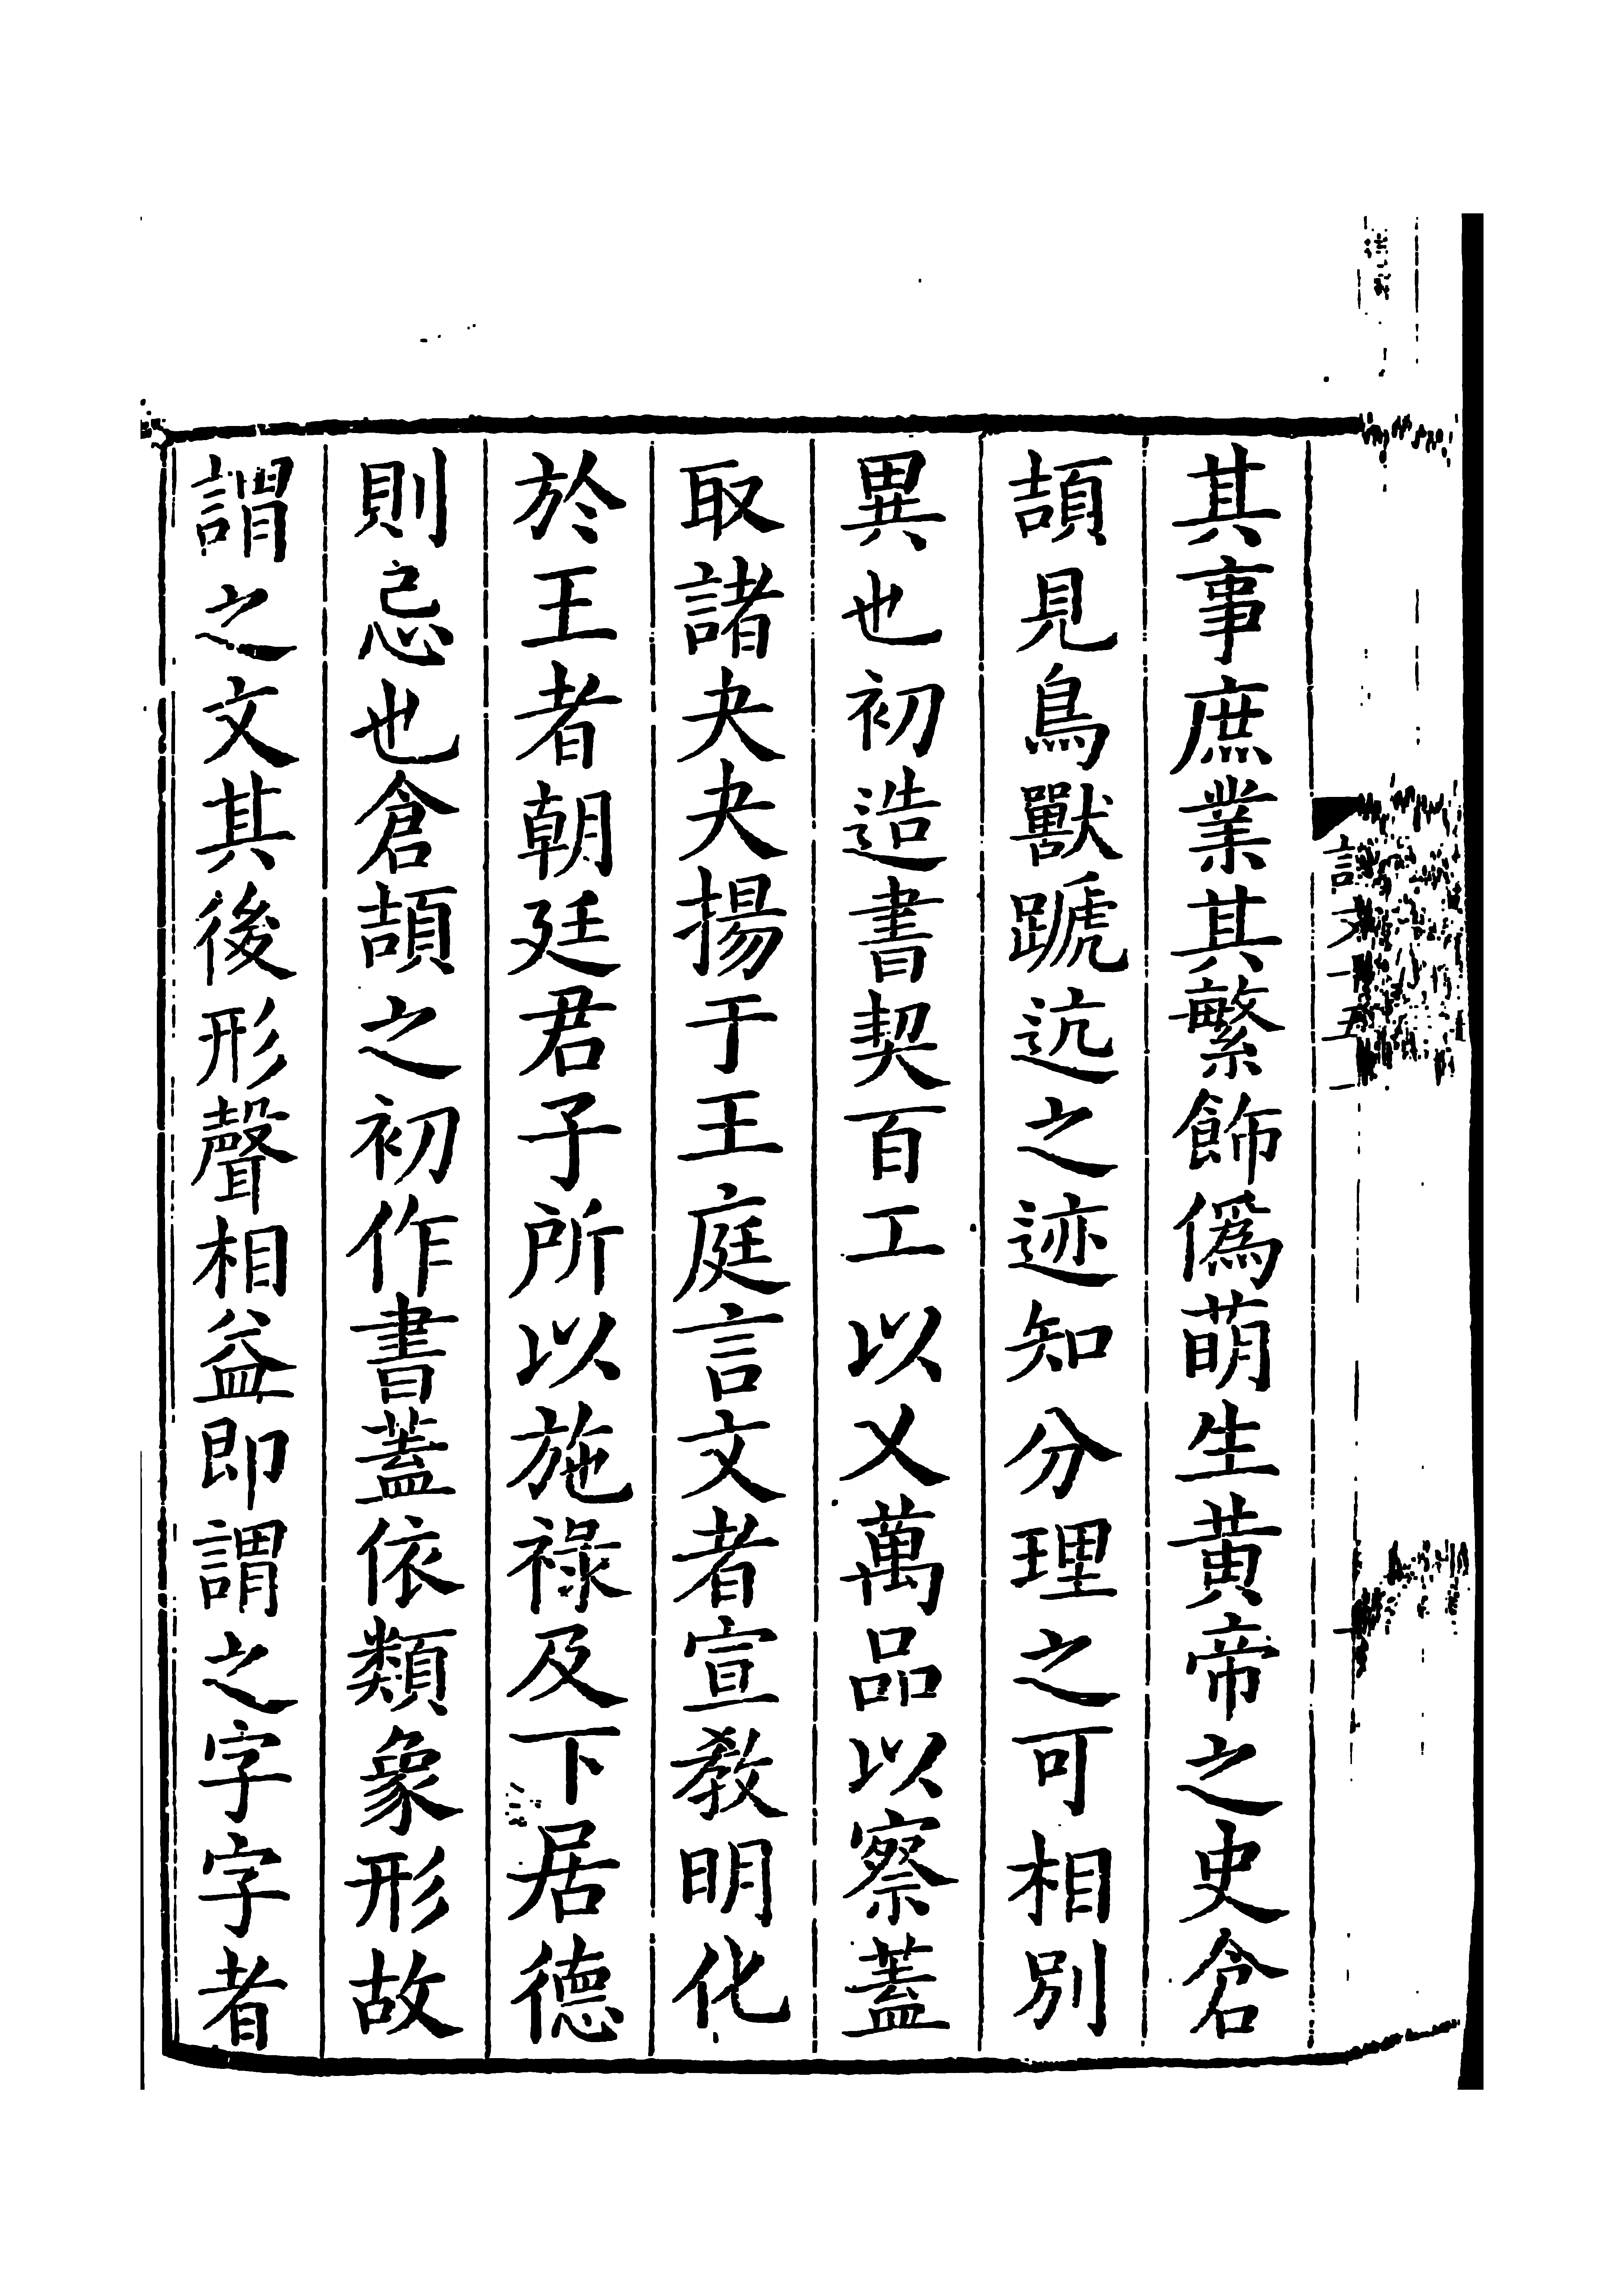 其事庶業其繁飾僞萌生黃帝之史倉
頡見鳥獸蹏迒之迹知分理之可相別
異也初造書契百工以乂萬品以察蓋
取諸夬夬揚于王庭言文者宣敎明化
於王者朝廷君子所以施祿及下居德
則忌也倉頡之初作書蓋依類象形故
謂之文其後形聲相益即謂之字字者